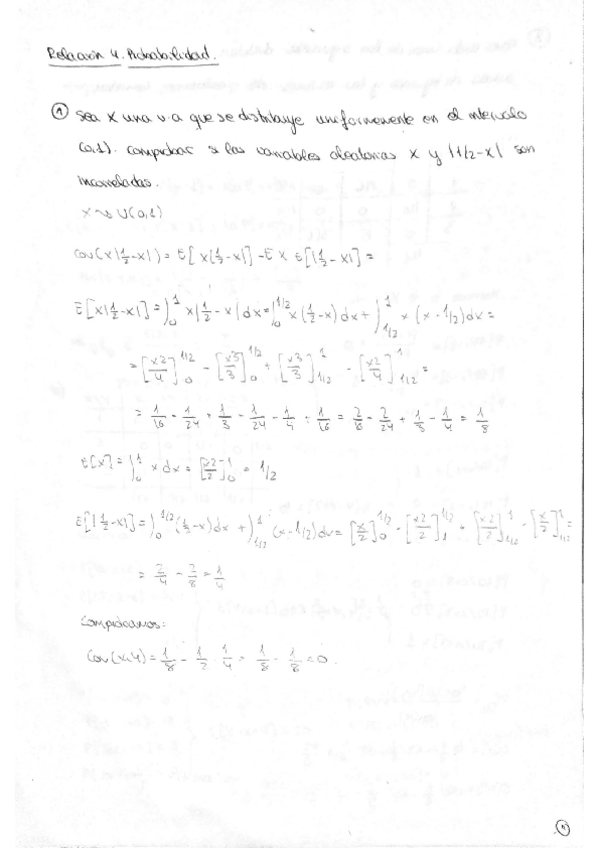 Relación 4. Probabilidad.
① Sea X una v.a que se distribuye uniformemente en el intervalo
(0,1). comprobar si las variables aleatorias X y |1/2-X| son
incorreladas.
X ~> U(0,1)
Cov(X|1/2-X|) = E[X|1/2-X|] - EX E[|1/2-X|] =
E[X|1/2-X|] = ∫₀¹ x|1/2-x|dx = ∫₀^1/2 x(1/2-x)dx + ∫_1/2^1 x(x-1/2)dx =
= [x2/4]₀^1/2 - [x3/3]₀^1/2 + [x3/3]_1/2^1 - [x2/4]_1/2^1 =
= 1/16 - 1/24 + 1/3 - 1/24 - 1/4 + 1/16 = 2/16 - 2/24 + 1/3 - 1/4 = 1/8
E[X] = ∫₀¹ x dx = [x2/2]₀¹ = 1/2
E[|1/2-X|] = ∫₀^1/2 (1/2-x)dx + ∫_1/2^1 (x-1/2)dx = [x/2]₀^1/2 - [x2/2]_1^1/2 + [x2/2]_1/2^1 - [x/2]_1/2^1 =
= 2/4 - 2/8 = 1/4
Comprobamos:
Cov(X,Y) = 1/8 - 1/2 · 1/4 = 1/8 - 1/8 = 0.
①